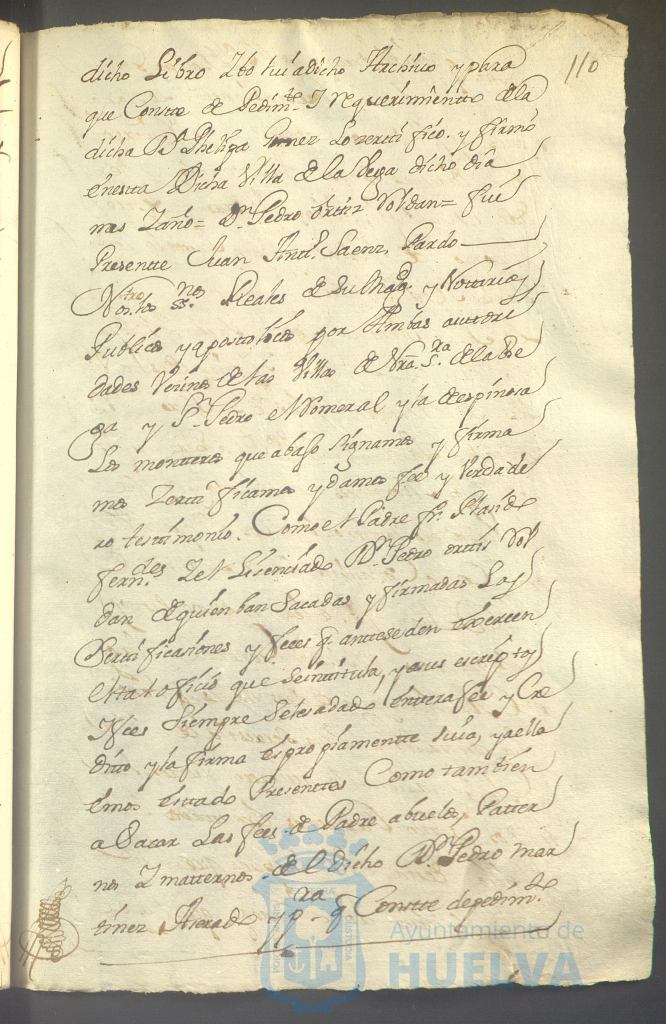 110
dicho Libro Zbolui a dicho Archivo y para
que Conste de Pedim.to I requerimiento de la
dicha D.a Pheliza Gomez Lo zerttifico. y firmo
en esta Dicha Villa de la Vega dicho dia
mes Zaño = D.n Pedro Ortiz Voldan = fui
Presente Juan Ant.o Saenz Pardo
Nos los ss.nos Reales de Su Mag.d y Nottarios
Publicos y apostolicos por Ambas autori
dades Vezinos de las Villas de Nra. S.ra de la Ve
ga y S.n Pedro el Romeral y la de espinosa
Los monteros que abajo signamos y firma
mos Zertificamos y damos fee y Verdade
ro testimonio. Como el Padre fr. Plasido
fern.des Zel Lisenciado D.n Pedro ortiz Vol
dan de quien ban Sacadas y firmadas Las
Zertificasiones y feees q. antteseden exercen
el tal ofisio que se intitula, y a sus escriptos
Ifees Siempre Seles a dado entera fee y Cre
dito y la firma es propiamentte suia, y a ella
emos estado Presenttes Como tamtien
a Sacar Las fees de Padre abuelos, Patter
nos Z matternos del dicho D.n Pedro mar
tinez y p.ra q Constte de pedim.to
Ayuntamiento de
HUELVA